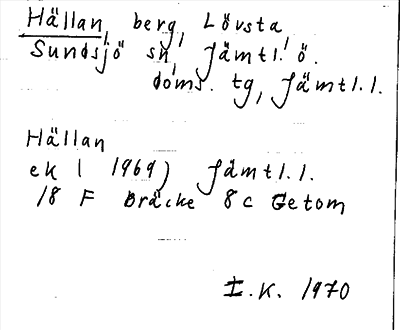 Hällan, berg, Lövsta,
Sundsjö sn, Jämtl. ö.
doms. tg, Jämtl. l.
Hällan
ek ( 1969) Jämtl. l.
18 F Bräcke 8c Getom
I.K. 1970